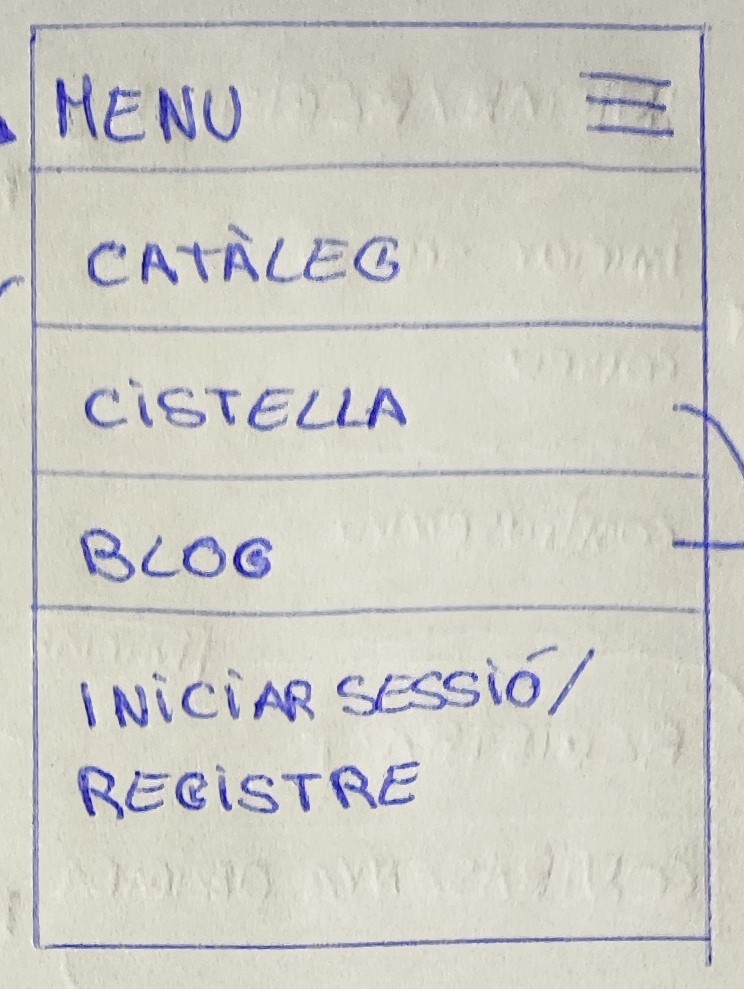 MENU
CATÀLEG
CISTELLA
BLOG
INICIAR SESSIÓ/
REGISTRE